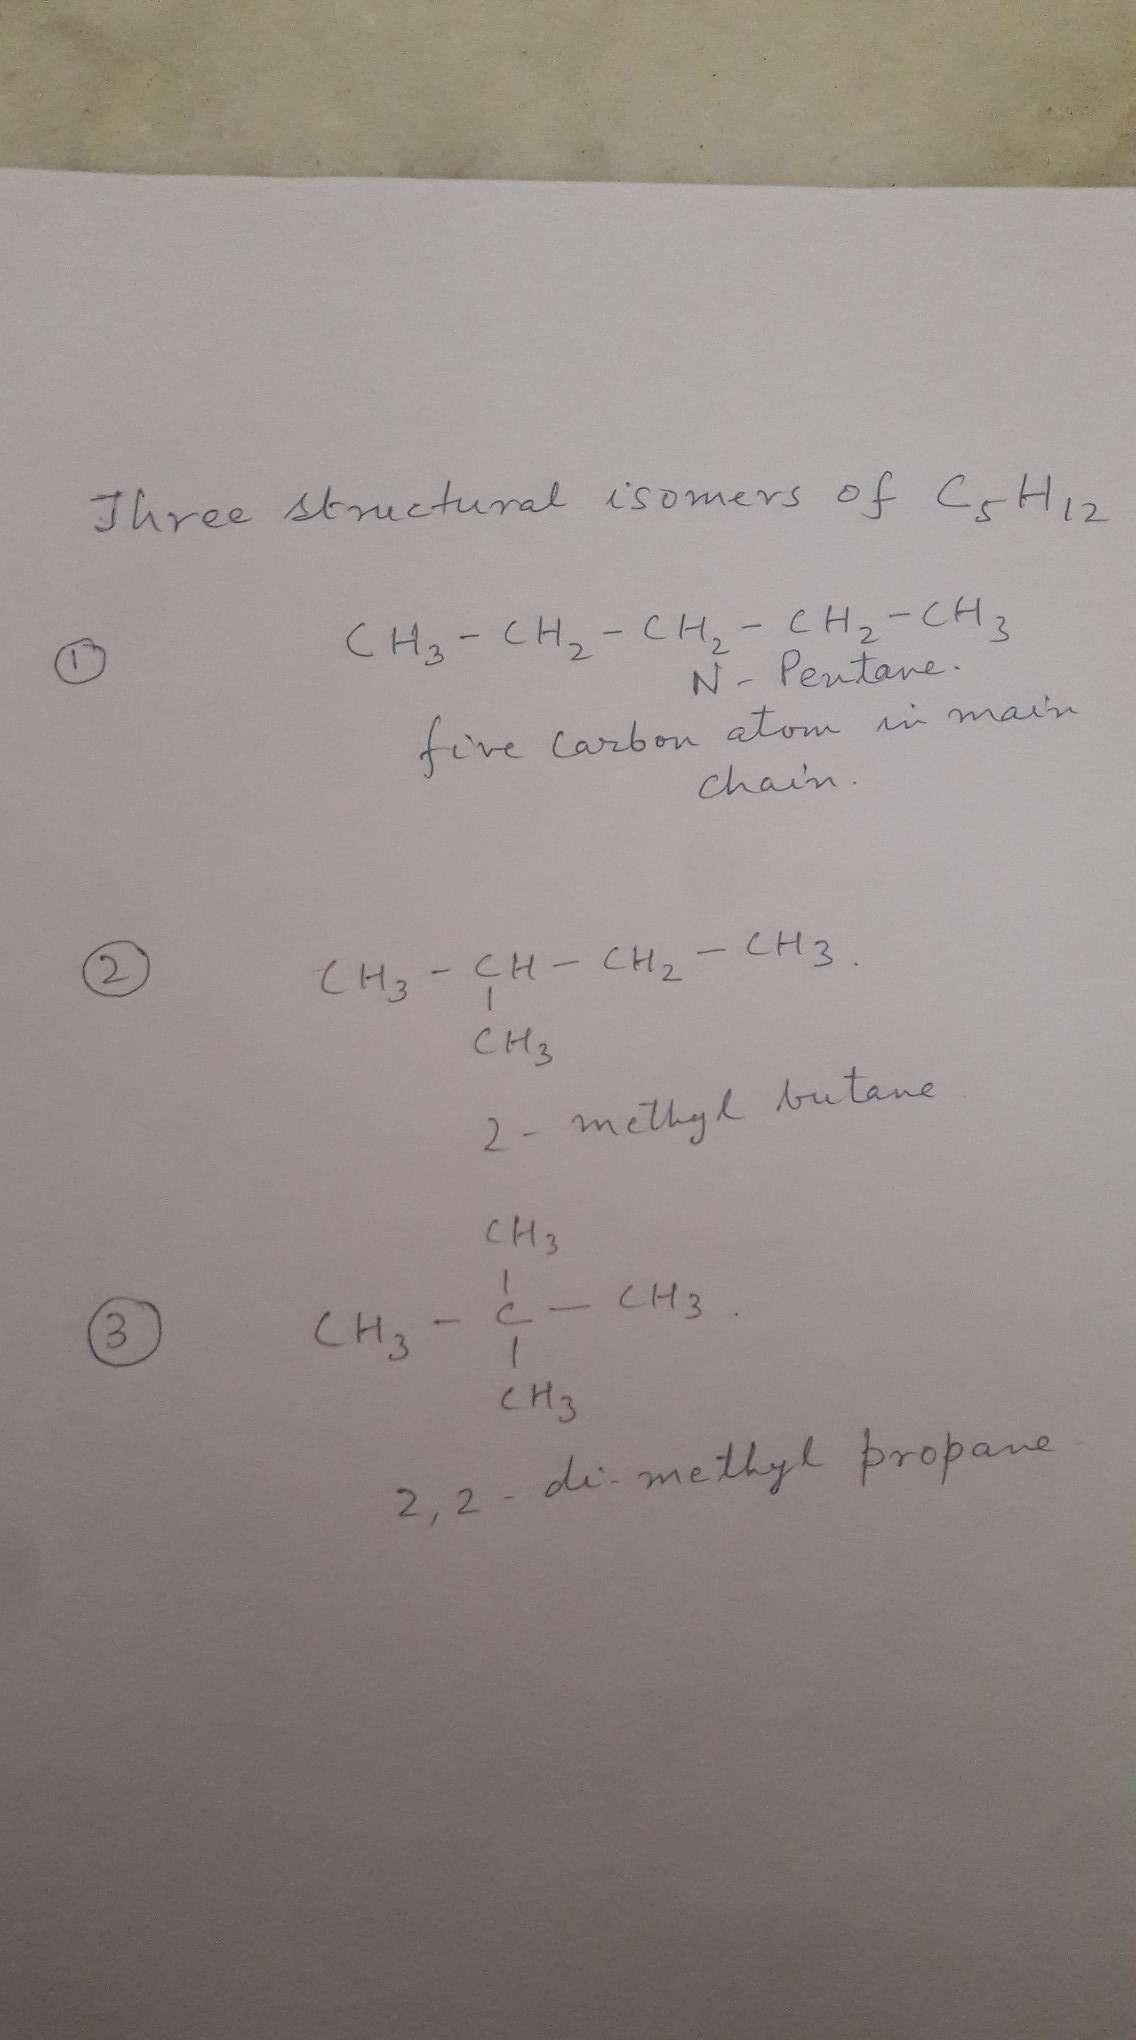 Three structural isomers of C₅H₁₂
① CH₃ - CH₂ - CH₂ - CH₂ - CH₃
N - Pentane.
five carbon atom in main
chain.
② CH₃ - CH - CH₂ - CH₃.
|
CH₃
2 - methyl butane
CH₃
|
③ CH₃ - C - CH₃.
|
CH₃
2,2 - di-methyl propane